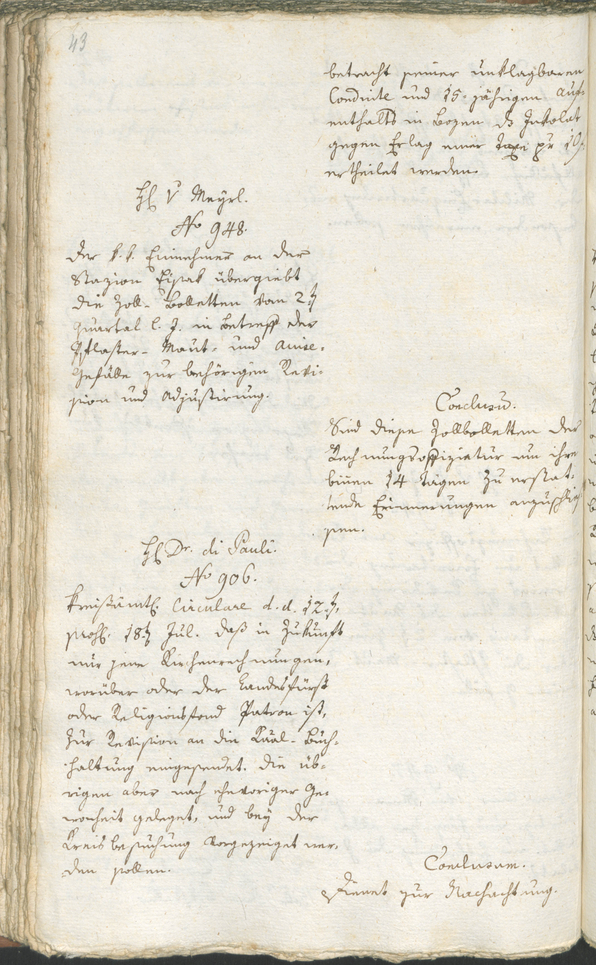 43
betracht seiner unklagbaren
Conduite und 15 jährigen auf-
enthalts in Bozen das Inkolat
gegen Erlag einer Taxe pr 10
ertheilet werden.
H v Meyrl.
No 948.
Der k. k. Einnehmer an der
Stazion Eisak übergiebt
die Zoll-Bolletten vom 2t
quartal l. J. in betreff der
Pflaster- Maut- und
Gefälle zur behörigen Revi-
sion und Adjustirung.
Conclusum.
Sind diese Zollbolletten der
Rechnungsoffiziatur um ihre
binen 14 tägen zu erstat-
tende Erinnerungen anzuschlies-
sen.
H Dr. di Pauli.
No 906.
Kreisämtl. Circulare d. d. 12t,
praes. 18t Jul. daß in Zukunft
nur jene Kirchenrechnungen,
worüber oder der Landesfürst
oder Religionsfond Patron ist,
zur Revision an die Kaal. Buch-
haltung eingesendet. die üb-
rigen aber nach ehevoriger Ge-
wonheit geleget, und bey der
Kreisbesuchung vorgezeiget wer-
den sollen.
Conclusum.
Dienet zur Nachachtung.